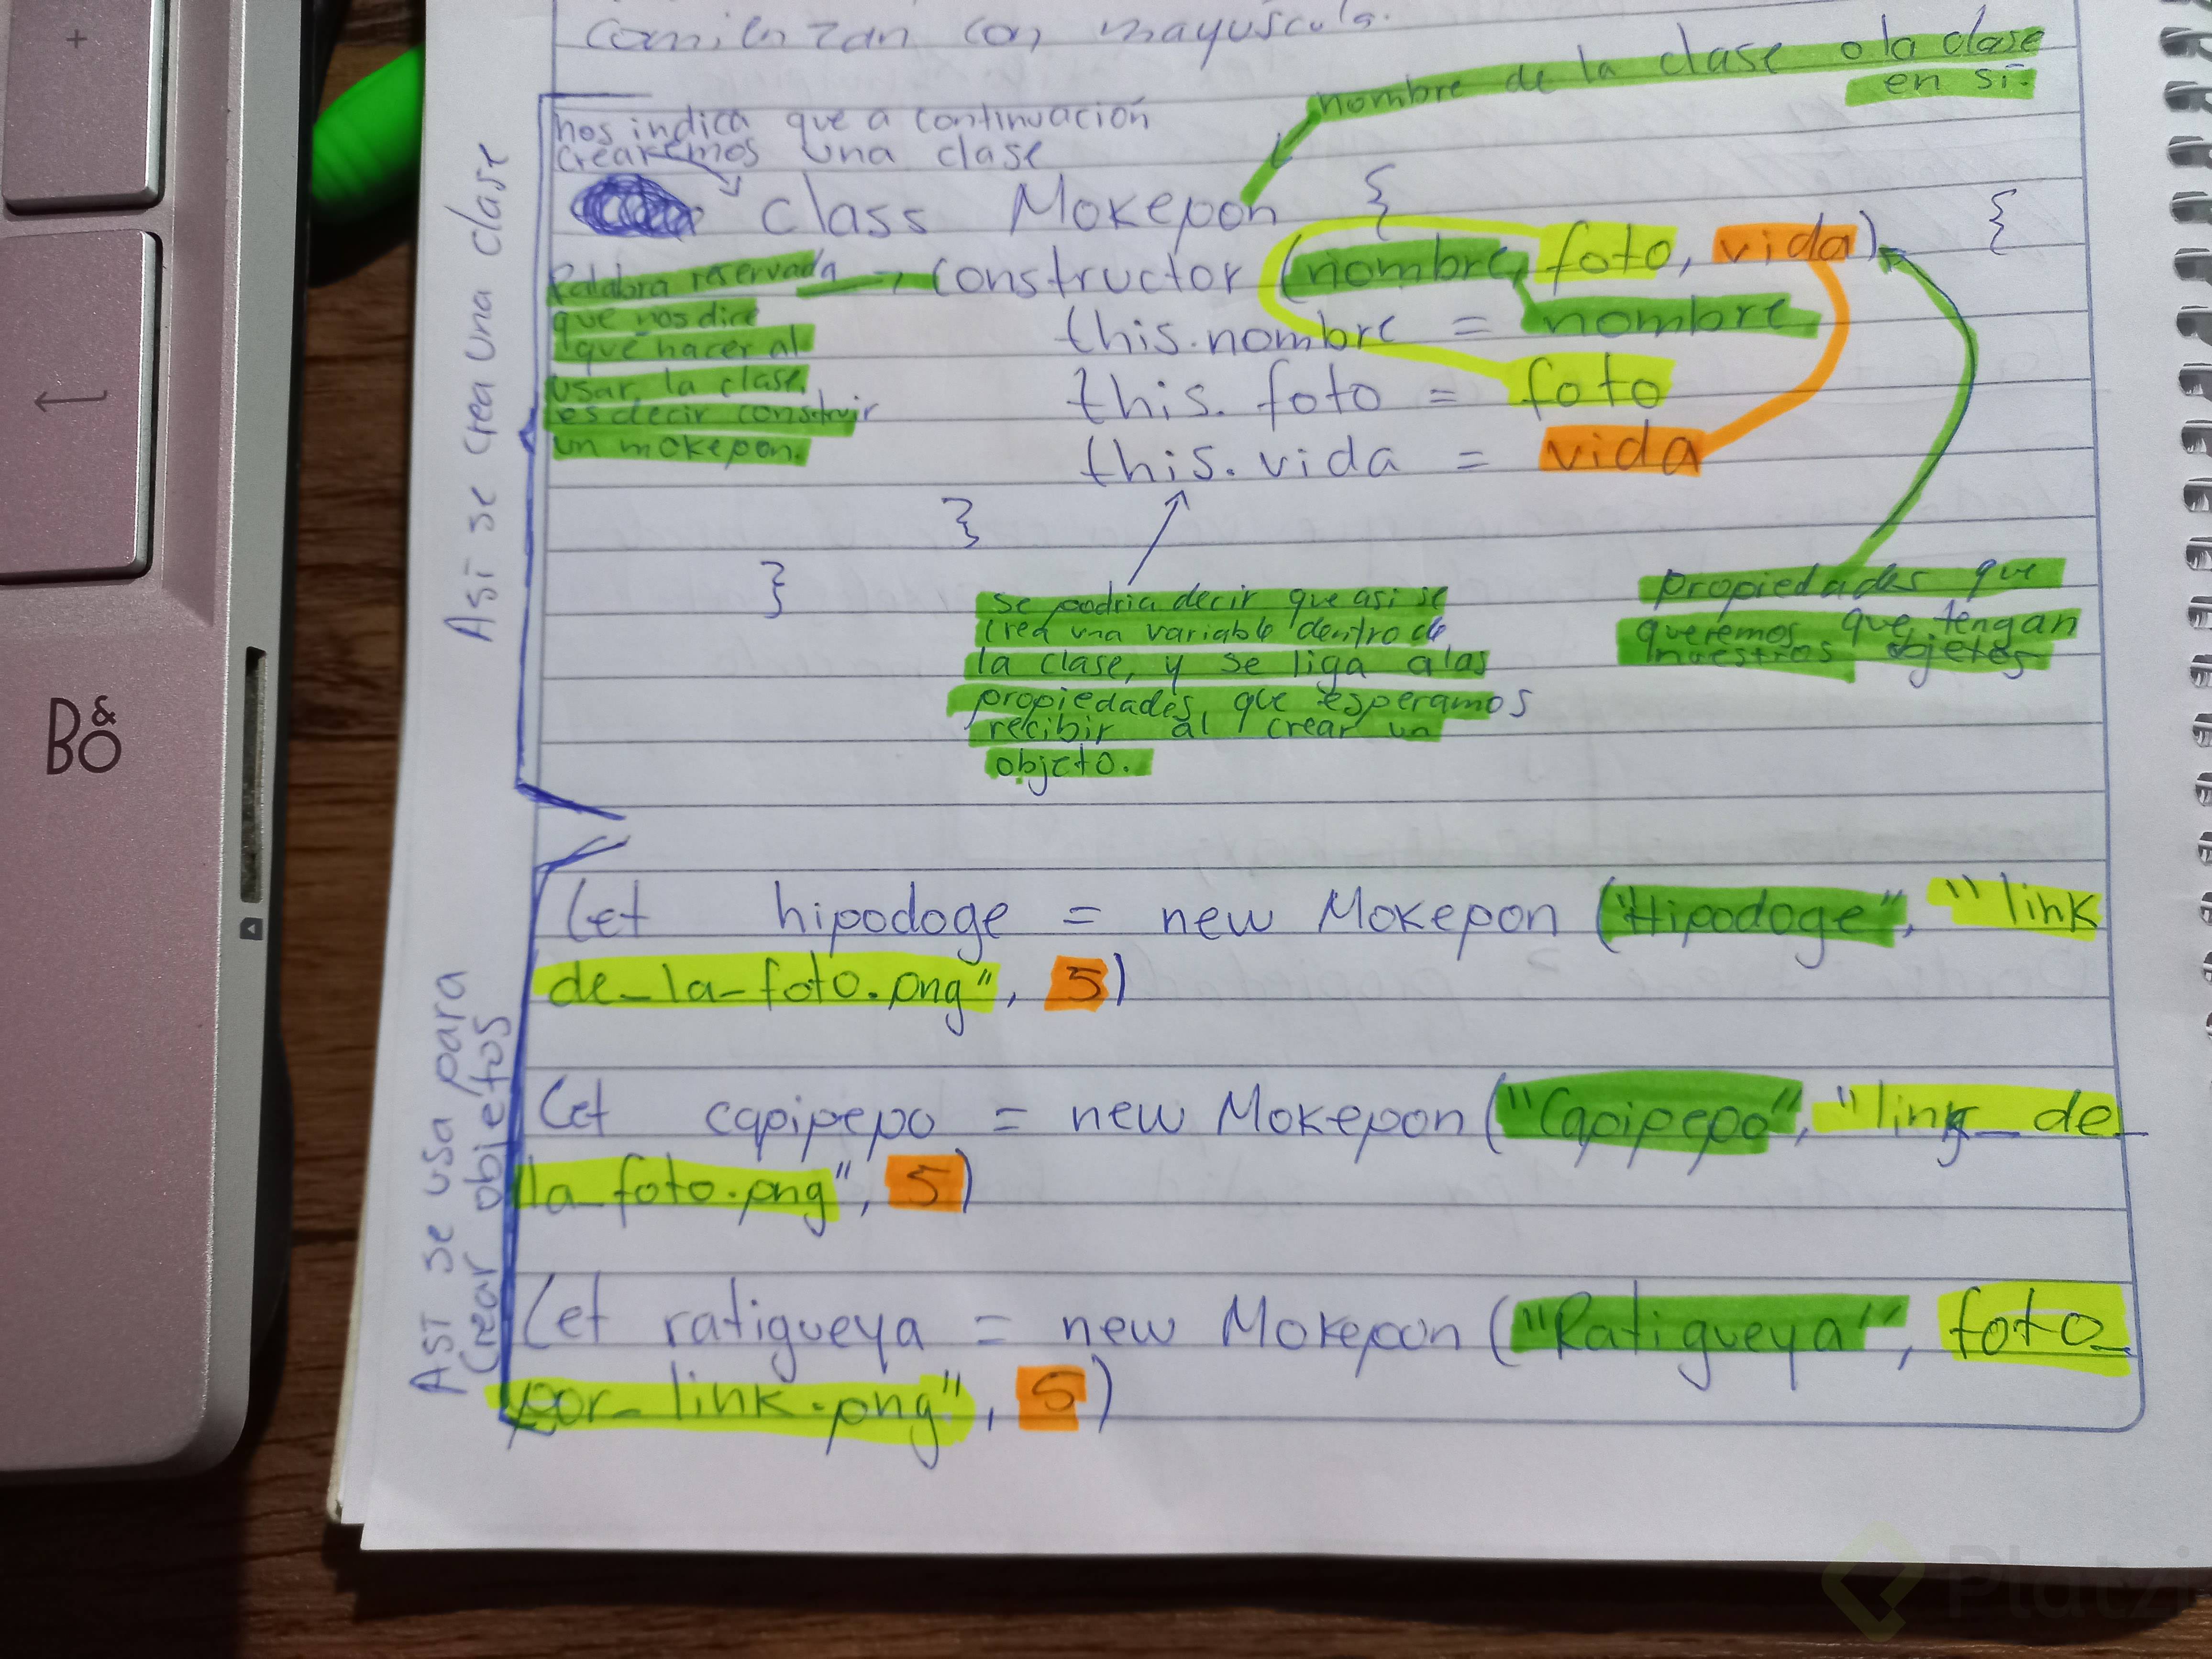 comienzan con mayuscula.
nombre de la clase o la clase
en si.
nos indica que a continuación
crearemos una clase
class Mokepon {
Palabra reservada
que nos dice
que hacer al
usar la clase,
es decir construir
un mokepon.
constructor (nombre, foto, vida) {
this.nombre = nombre
this.foto = foto
this.vida = vida
}
}
se podria decir que asi se
crea una variable dentro de
la clase, y se liga a las
propiedades que esperamos
recibir al crear un
objeto.
propiedades que
queremos que tengan
nuestros objetos
Asi se crea una clase
Let hipodoge = new Mokepon ("Hipodoge", "link
de_la_foto.png", 5)
Let capipepo = new Mokepon ("Capipepo", "link_de_
la_foto.png", 5)
Let ratigueya = new Mokepon ("Ratigueya", foto_
por_link.png", 5)
Asi se usa para
crear objetos
+
B&O
Platzi